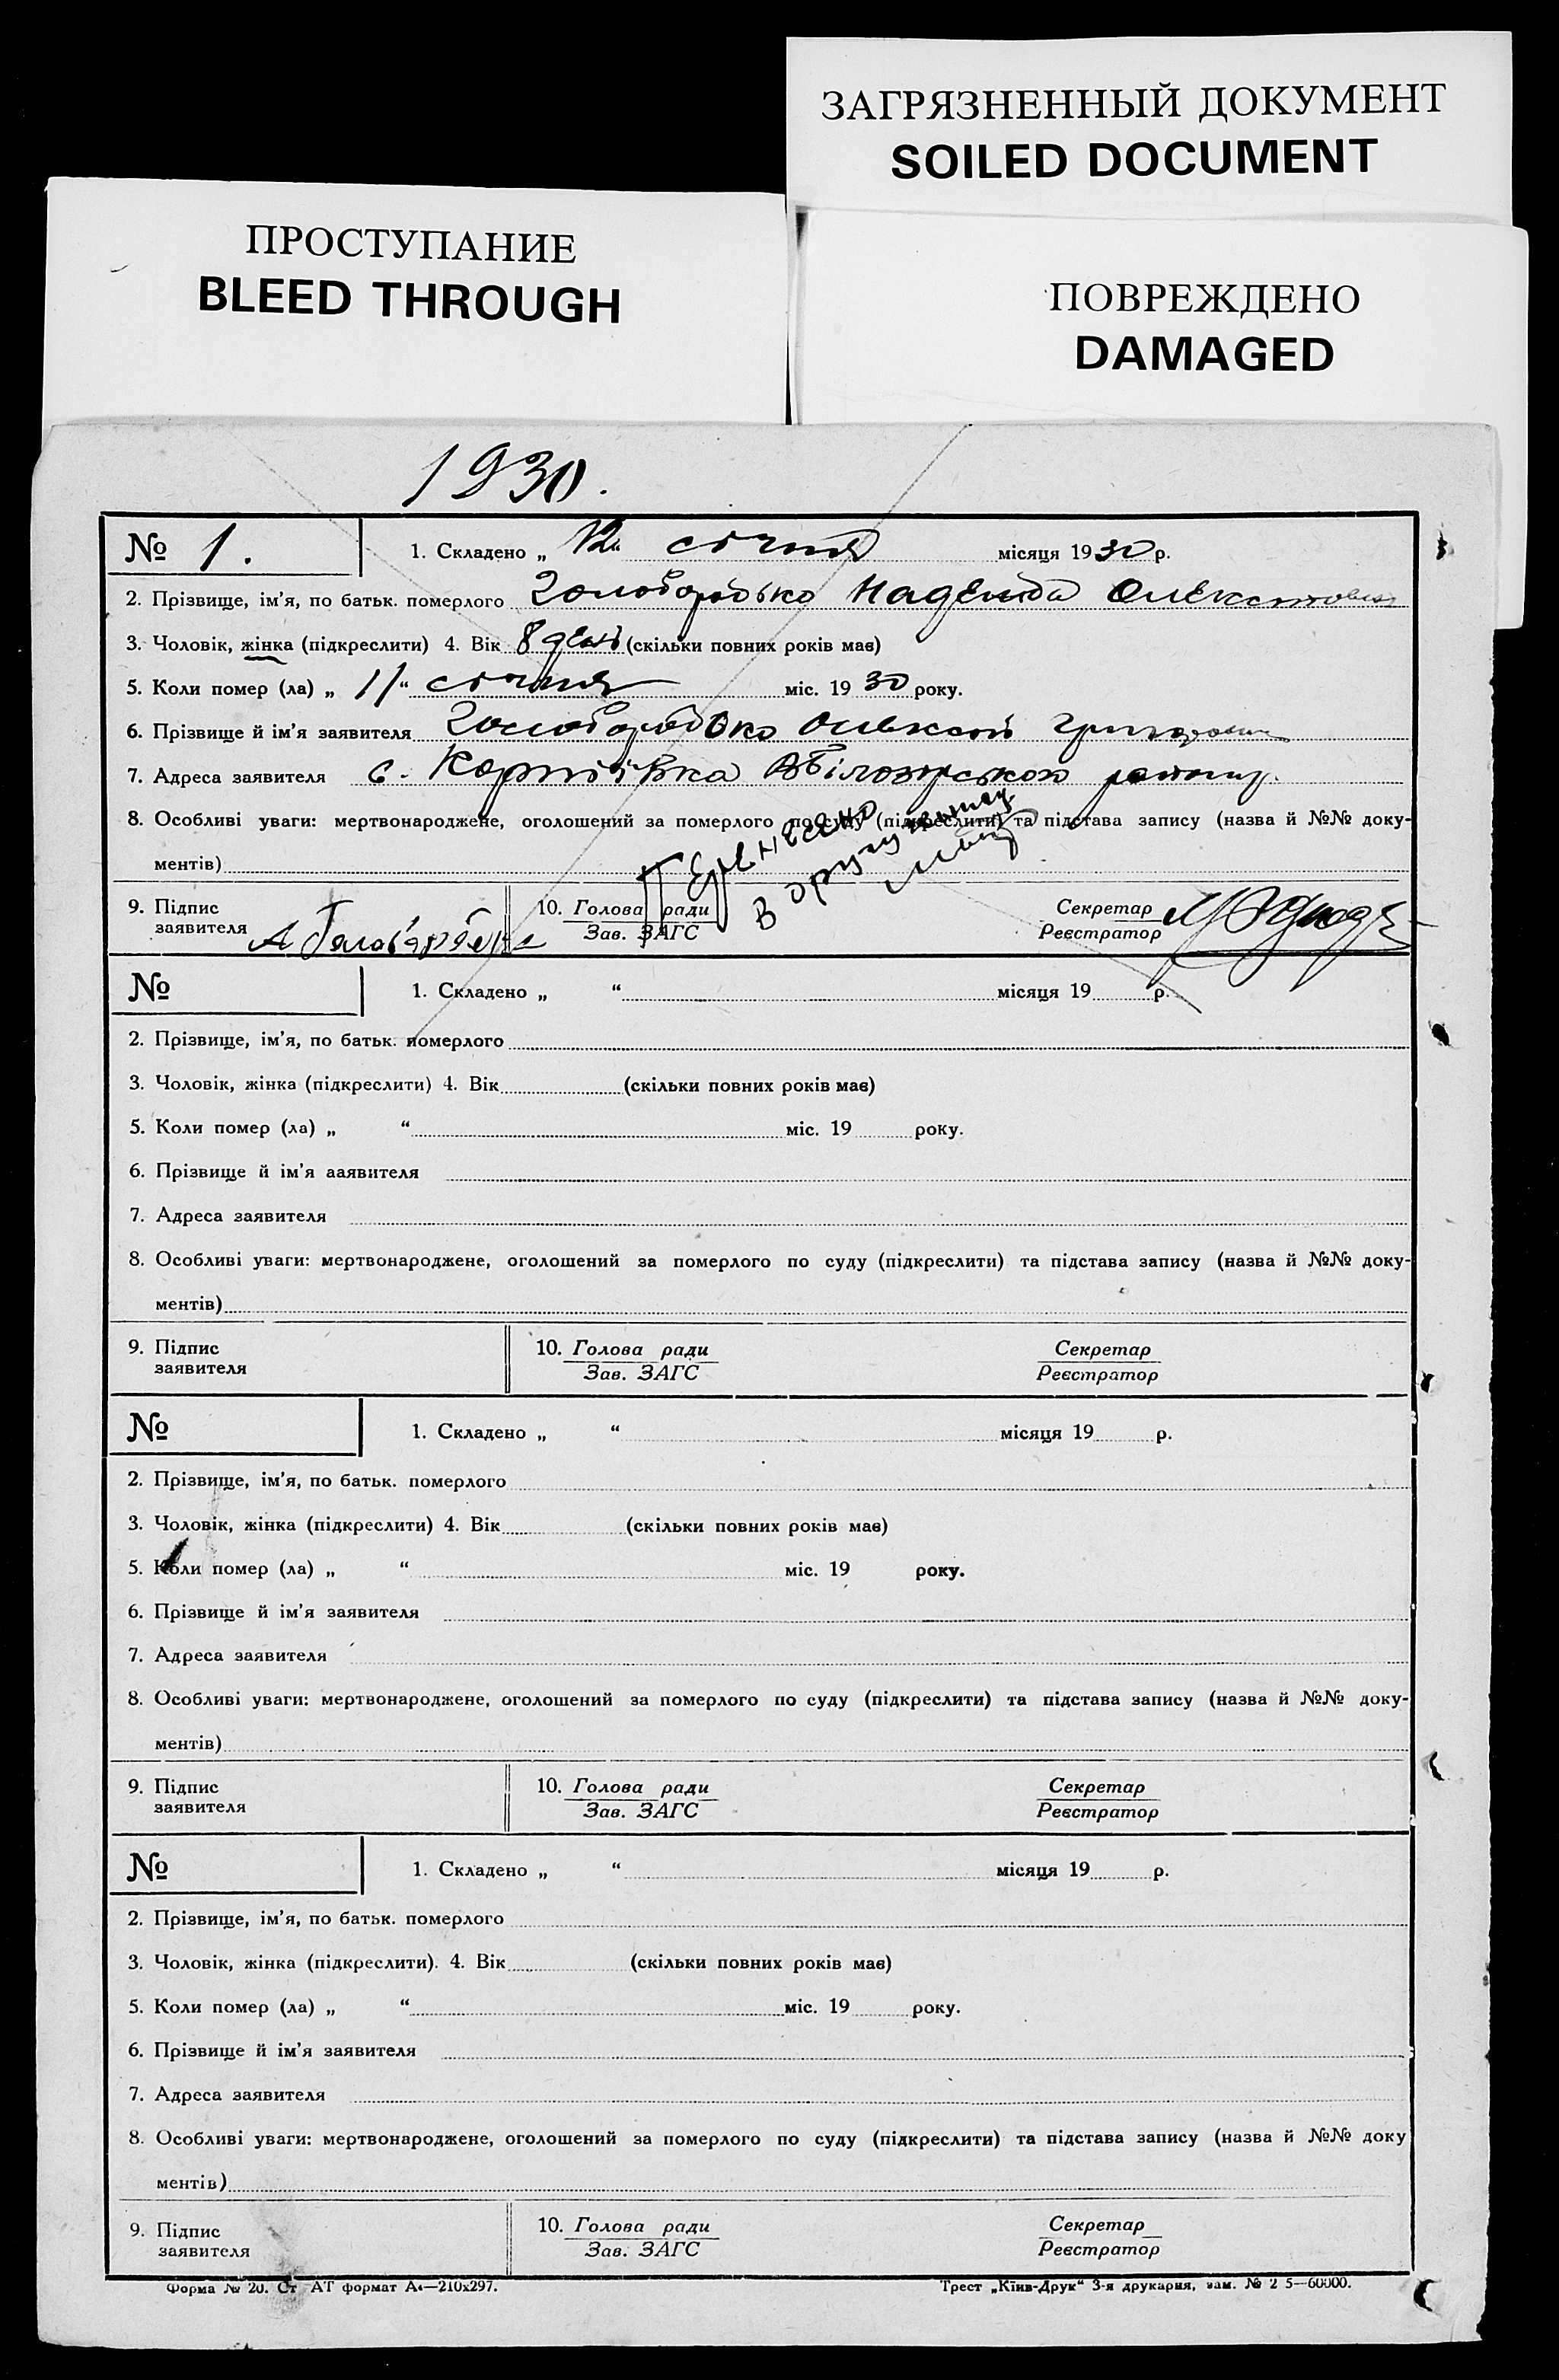 ЗАГРЯЗНЕННЫЙ ДОКУМЕНТ
SOILED DOCUMENT
ПРОСТУПАНИЕ
BLEED THROUGH
ПОВРЕЖДЕНО
DAMAGED
1930.
№ 1.
1. Складено „ 12 “ січня місяця 1930 р.
2. Прізвище, ім'я, по батьк. померлого Голобородько Надежда
3. Чоловік, жінка (підкреслити) 4. Вік 8 день (скільки повних років має)
5. Коли помер (ла) „ 11 “ січня міс. 1930 року.
6. Прізвище й ім'я заявителя Голобородько Олексій Григорович
7. Адреса заявителя с. Корніївка Білозірського району
8. Особливі уваги: мертвонароджене, оголошений за померлого по суду (підкреслити) та підстава запису (назва й №№ доку-
ментів)
Перенесено
в другу
9. Підпис
заявителя
10. Голова ради
Зав. ЗАГС
Секретар
Реєстратор
№
1. Складено „ “ місяця 19 р.
2. Прізвище, ім'я, по батьк. померлого
3. Чоловік, жінка (підкреслити) 4. Вік (скільки повних років має)
5. Коли помер (ла) „ “ міс. 19 року.
6. Прізвище й ім'я ааявителя
7. Адреса заявителя
8. Особливі уваги: мертвонароджене, оголошений за померлого по суду (підкреслити) та підстава запису (назва й №№ доку-
ментів)
9. Підпис
заявителя
10. Голова ради
Зав. ЗАГС
Секретар
Реєстратор
№
1. Складено „ “ місяця 19 р.
2. Прізвище, ім'я, по батьк. померлого
3. Чоловік, жінка (підкреслити) 4. Вік (скільки повних років має)
5. Коли помер (ла) „ “ міс. 19 року.
6. Прізвище й ім'я заявителя
7. Адреса заявителя
8. Особливі уваги: мертвонароджене, оголошений за померлого по суду (підкреслити) та підстава запису (назва й №№ доку-
ментів)
9. Підпис
заявителя
10. Голова ради
Зав. ЗАГС
Секретар
Реєстратор
№
1. Складено „ “ місяця 19 р.
2. Прізвище, ім'я, по батьк. померлого
3. Чоловік, жінка (підкреслити). 4. Вік (скільки повних років має)
5. Коли помер (ла) „ “ міс. 19 року.
6. Прізвище й ім'я заявителя
7. Адреса заявителя
8. Особливі уваги: мертвонароджене, оголошений за померлого по суду (підкреслити) та підстава запису (назва й №№ доку
ментів)
9. Підпис
заявителя
10. Голова ради
Зав. ЗАГС
Секретар
Реєстратор
Форма № 20. Ст АТ формат А4—210х297.
Трест „Київ-Друк“ 3-я друкарня, зам. № 2 5—60000.